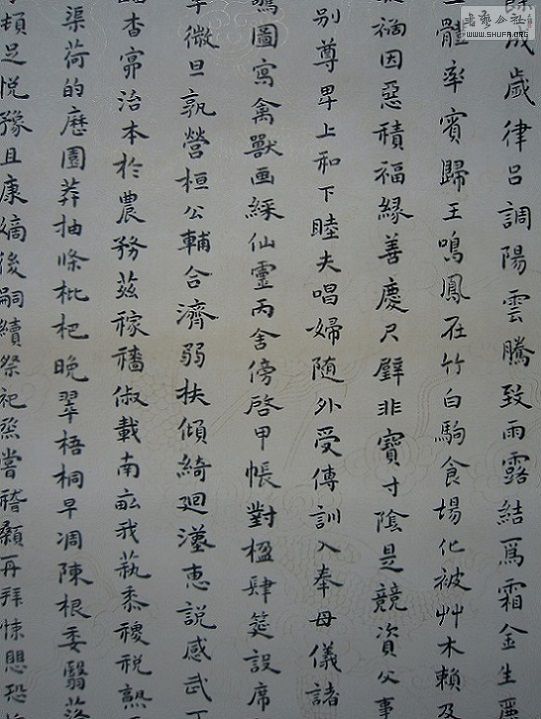 書藝公社
WWW.SHUFA.ORG
成歲律呂調陽雲騰致雨露結爲霜金生
體率賓歸王鳴鳳在竹白駒食場化被艸木賴及
禍因惡積福緣善慶尺璧非寶寸陰是競資父事
別尊卑上和下睦夫唱婦隨外受傅訓入奉母儀諸
圖寫禽獸画綵仙靈丙舍傍啓甲帳對楹肆筵設席
微旦孰營桓公輔合濟弱扶傾綺迴漢惠說感武丁
杳冥治本於農務茲稼穡俶載南畝我藝黍稷稅熟
渠荷的歷園莽抽條枇杷晚翠梧桐早凋陳根委翳落
頓足悅豫且康嫡後嗣續祭祀烝嘗稽顙再拜悚懼恐